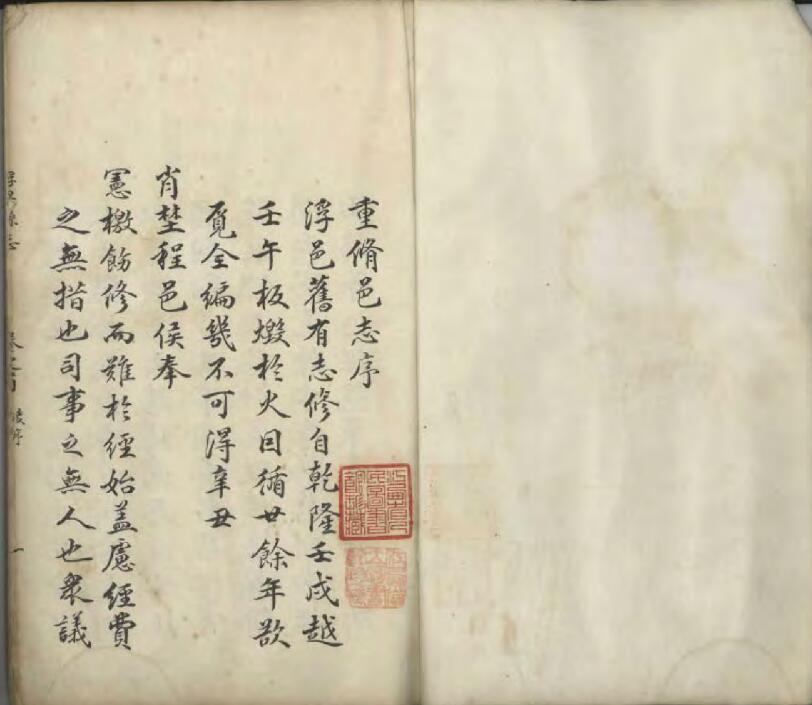 重脩邑志序
浮邑舊有志修自乾隆壬戌越
壬午板燬於火因循廿餘年欲
覓全編幾不可得辛丑
肖埜程邑侯奉
憲檄飭修而難於經始盖慮經費
之無措也司事之無人也衆議
浮梁縣志
一